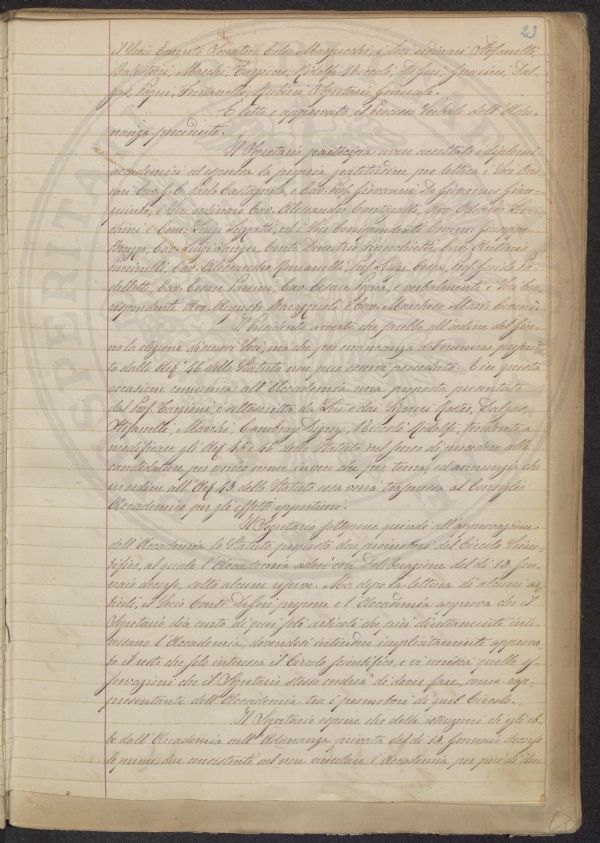 23
il Socio Emerito Senatore Marchese i Soci ordinari Stefanelli,
Marchi, Targioni, Ridolfi Niccolò, De Gori, Guarini, Dal-
gas, Fontanelli, Rubieri Segretario Generale.
È letto e approvato il Processo Verbale dell'Adu-
nanza precedente.
Il Segretario partecipa avere accettato i diplomi
accademici ed espressa la propria gratitudine per lettera, i Soci
Cav. Prof. Giovanni De Gioannis Gian-
quinto, i Soci ordinari Cav. Alessandro Cav. Odoardo
e Com. Luigi ed i Soci Corrispondenti
Cav. Luigi Conte Demetrio Cav. Antonio
Cav. Alessandro Romanelli, Prof. Luigi Cossa, Prof. Guido Pa-
delletti, Cav. Cesare Parrini, Cav. Cesare e verbalmente i Soci Cor-
rispondenti Avv. Augusto Barazzuoli e Cav. Marchese
Il Presidente avverte che farebbe all'ordine del gior-
no la elezione di nuovi Soci, ma che per mancanza del numero prescritto
dallo Art. 46 dello Statuto non può esservi proceduto. E in questa
occasione comunica all'Accademia una proposta presentata
dal Prof. Targioni, e sottoscritta da Lui e dai Signori Dalgas,
Stefanelli, Marchi, Cambray Digny, Niccolò Ridolfi, tendente a
modificare gli Art. 45 e 46 dello Statuto nel senso di procedere alle
candidature per unico nome invece che per terna, ed annunzia che
in ordine all'Art. 43 dello Statuto essa verrà trasmessa al Consiglio
Accademico per gli effetti opportuni.
Il Segretario sottopone quindi all'approvazione
dell'Accademia lo Statuto proposto dai promotori del Circolo Scien-
tifico, al quale l'Accademia aderì con Deliberazione del dì 13 Gen-
naio decorso, sotto alcune riserve. Ma dopo la lettura di alcuni ar-
ticoli, il Socio Conte De Gori propone e l'Accademia approva che il
Segretario dia conto di quei soli articoli che più direttamente inte-
ressano l'Accademia, dovendosi intendere implicitamente approva-
to il resto che solo interessa il Circolo scientifico, e vi unisca quelle os-
servazioni che il Segretario stesso crederà di dover fare, come rap-
presentante dell'Accademia tra i promotori di quel Circolo.
Il Segretario espone che delle istruzioni che egli eb-
be dall'Accademia nell'Adunanza privata del dì 13 Gennaio decorso
le prime due consistenti nel non vincolare l'Accademia per più di due